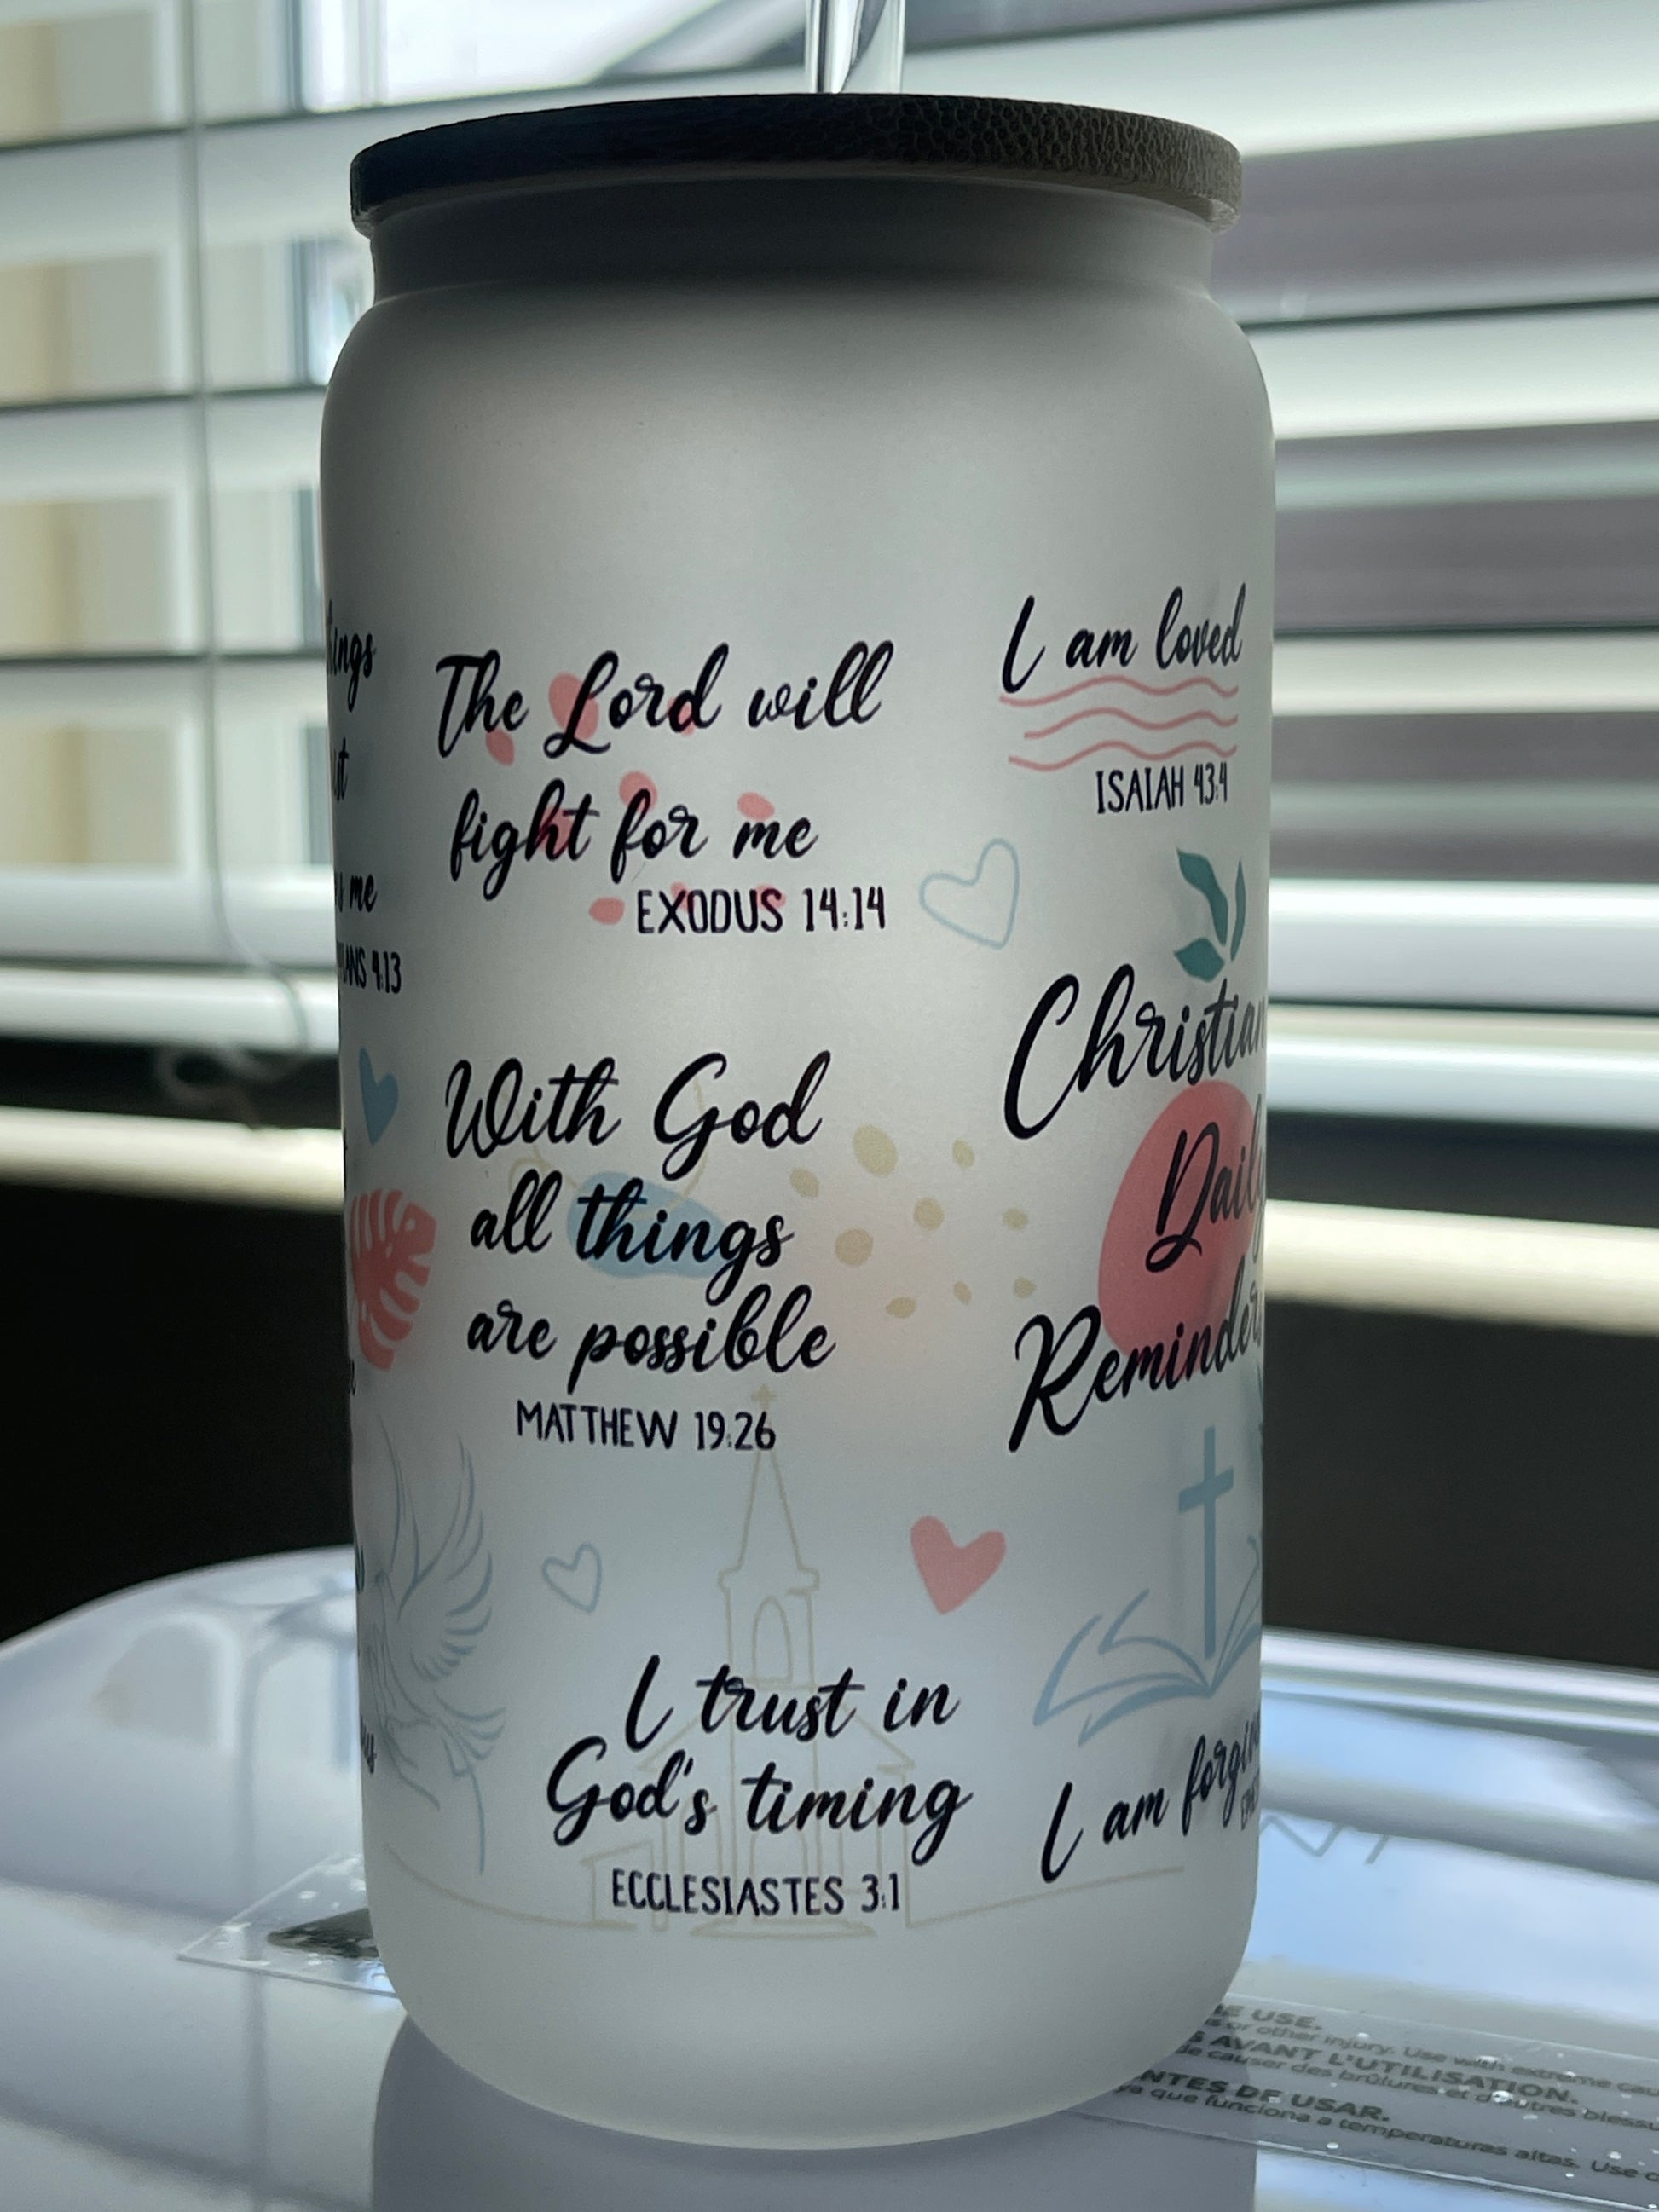 The Lord will
fight for me
EXODUS 14:14
I am loved
ISAIAH 43:4
me
4:13
With God
all things
are possible
MATTHEW 19:26
Christian
Daily
Reminder
I trust in
God's timing
ECCLESIASTES 3:1
I am
USE.
or other injury. Use with extreme
AVANT L'UTILISATION.
de causer des brûlures et d'autres
DE USAR.
ya que funciona a temperaturas altas. Use